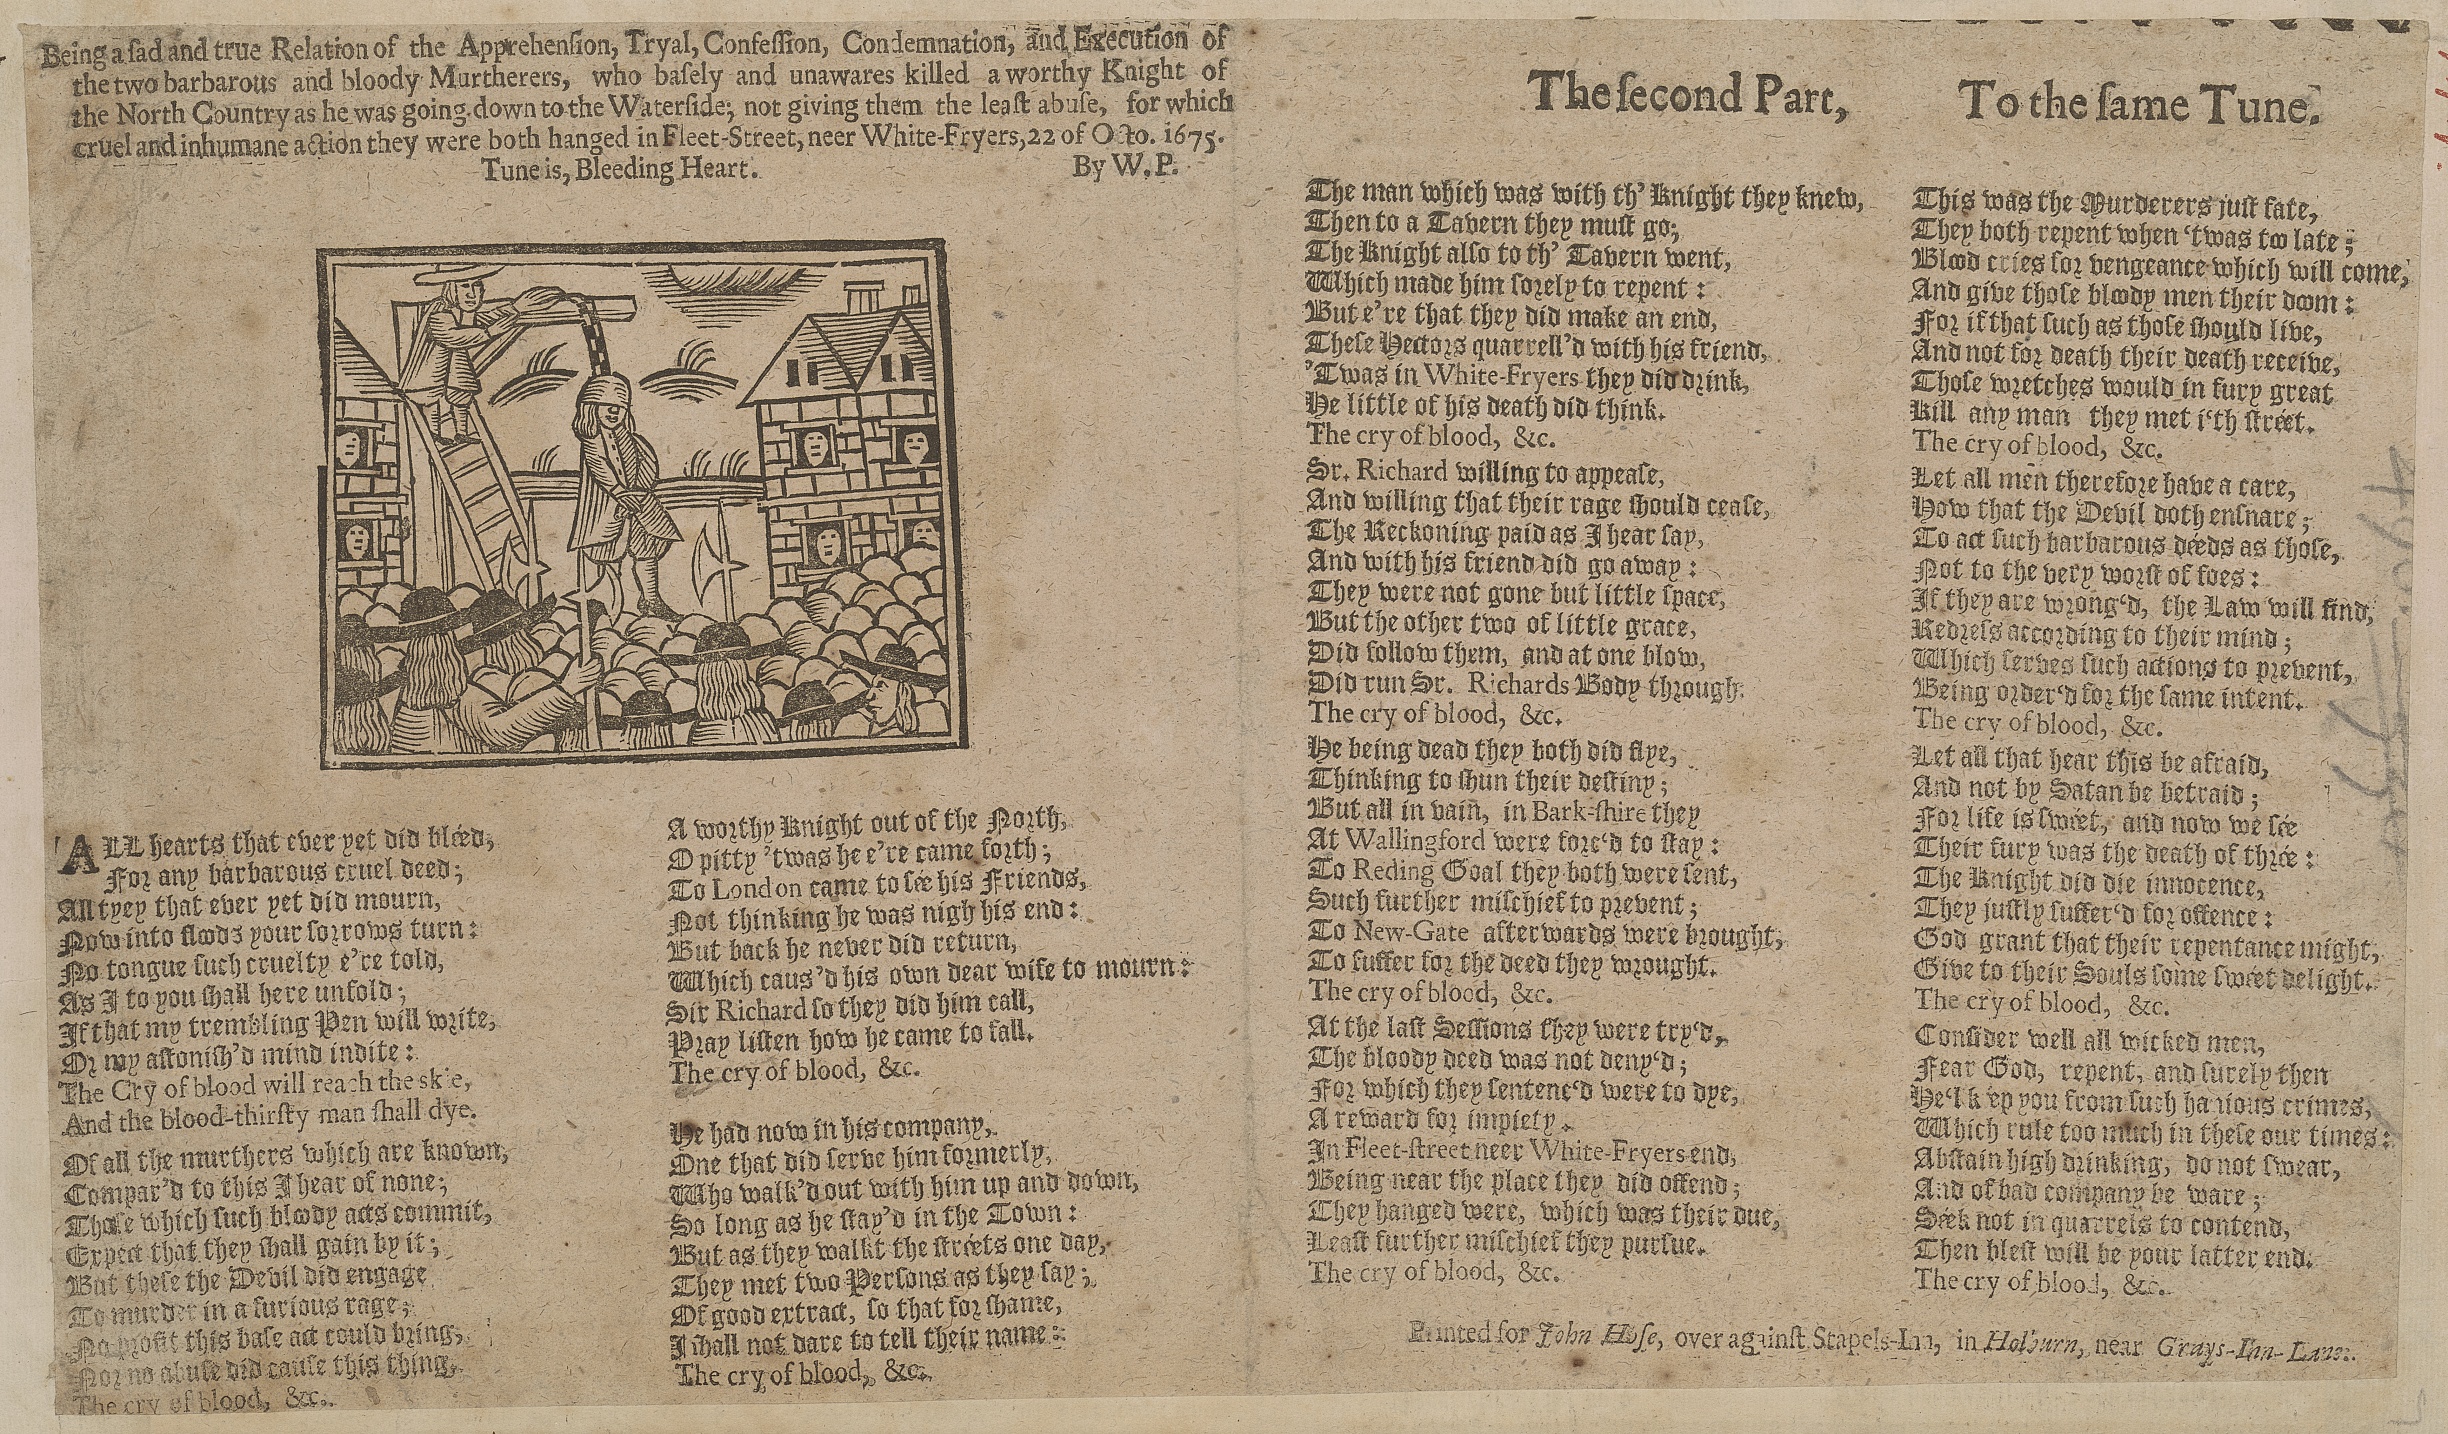 Being a sad and true Relation of the Apprehension, Tryal, Confession, Condemnation, and Execution of
the two barbarous and bloody Murtherers, who basely and unawares killed a worthy Knight of
the North Country as he was going down to the Waterside; not giving them the least abuse, for which
cruel and inhumane action they were both hanged in Fleet-Street, neer White-Fryers, 22 of Octo. 1675.
Tune is, Bleeding Heart. By W. P.
ALL hearts that ever yet did bleed,
For any barbarous cruel deed;
All tyey that ever yet did mourn,
Now into floods your sorrows turn:
No tongue such cruelty e're told,
As I to you shall here unfold;
If that my trembling Pen will write,
Or my astonish'd mind indite:
The Cry of blood will reach the skie,
And the blood-thirsty man shall dye.
Of all the murthers which are known,
Compar'd to this I hear of none;
Those which such bloody acts commit,
Expect that they shall gain by it;
But these the Devil did engage
To murder in a furious rage;
No profit this base act could bring,
Nor no abuse did cause this thing.
The cry of blood, &c.
A worthy Knight out of the North,
O pitty 'twas he e're came forth;
To London came to see his Friends,
Not thinking he was nigh his end:
But back he never did return,
Which caus'd his own dear wife to mourn:
Sir Richard so they did him call,
Pray listen how he came to fall.
The cry of blood, &c.
He had now in his company,
One that did serve him formerly,
Who walk'd out with him up and down,
So long as he stay'd in the Town:
But as they walkt the streets one day,
They met two Persons as they say;
Of good extract, so that for shame,
I shall not dare to tell their name:
The cry of blood, &c.
The second Part, To the same Tune.
The man which was with th' Knight they knew,
Then to a Tavern they must go;
The Knight also to th' Tavern went,
Which made him sorely to repent:
But e're that they did make an end,
These Hectors quarrell'd with his friend,
'Twas in White-Fryers they did drink,
He little of his death did think.
The cry of blood, &c.
Sr. Richard willing to appease,
And willing that their rage should cease,
The Reckoning paid as I hear say,
And with his friend did go away:
They were not gone but little space,
But the other two of little grace,
Did follow them, and at one blow,
Did run Sr. Richards Body through.
The cry of blood, &c.
He being dead they both did flye,
Thinking to shun their destiny;
But all in vain, in Bark-shire they
At Wallingford were forc'd to stay:
To Reding Goal they both were sent,
Such further mischief to prevent;
To New-Gate afterwards were brought,
To suffer for the deed they wrought.
The cry of blood, &c.
At the last Sessions they were try'd,
The bloody deed was not deny'd;
For which they sentenc'd were to dye,
A reward for impiety.
In Fleet-street neer White-Fryers end,
Being near the place they did offend;
They hanged were, which was their due,
Least further mischief they pursue.
The cry of blood, &c.
This was the Murderers just fate,
They both repent when 'twas too late;
Blood cries for vengeance which will come,
And give those bloody men their doom:
For if that such as those should live,
And not for death their death receive,
Those wretches would in fury great
Kill any man they met i'th street.
The cry of blood, &c.
Let all men therefore have a care,
How that the Devil doth ensnare;
To act such barbarous deeds as those,
Not to the very worst of foes:
If they are wrong'd, the Law will find,
Redress according to their mind;
Which serves such actions to prevent,
Being order'd for the same intent.
The cry of blood, &c.
Let all that hear this be afraid,
And not by Satan be betraid;
For life is sweet, and now we see
Their fury was the death of three:
The Knight did die innocence,
They justly suffer'd for offence:
God grant that their repentance might,
Give to their Souls some sweet delight.
The cry of blood, &c.
Consider well all wicked men,
Fear God, repent, and surely then
He'l keep you from such hainous crimes,
Which rule too much in these our times:
Abstain high drinking, do not swear,
And of bad company be ware;
Seek not in quarrels to contend,
Then blest will be your latter end.
The cry of blood, &c.
Printed for John Hose, over against Stapels-Inn, in Holburn, near Grays-Inn-Lane.